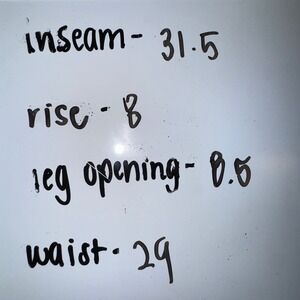 inseam- 31.5
rise - 8
leg opening- 8.5
waist- 29